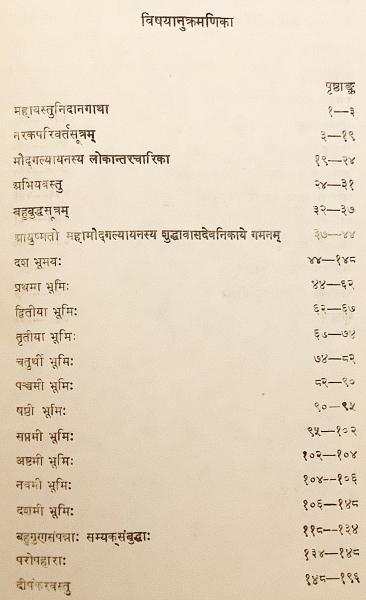 विषयानुक्रमणिका
पृष्ठाङ्क
महावस्तुनिदानगाथा १—३
नरकपरिवर्तसूत्रम् ३—१९
मौद्गल्यायनस्य लोकान्तरचारिका १९—२४
अभियवस्तु २४—३१
बहुबुद्धसूत्रम् ३२—३७
आयुष्मतो महामौद्गल्यायनस्य शुद्धावासदेवनिकाये गमनम् ३७—४४
दश भूमयः ४४—१४८
प्रथमा भूमिः ४४—६२
द्वितीया भूमिः ६२—६७
तृतीया भूमिः ६७—७४
चतुर्थी भूमिः ७४—८२
पञ्चमी भूमिः ८२—९०
षष्ठी भूमिः ९०—९५
सप्तमी भूमिः ९५—१०२
अष्टमी भूमिः १०२—१०४
नवमी भूमिः १०४--१०६
दशमी भूमिः १०६—१४८
बहुगुणसंपन्नाः सम्यक्संबुद्धाः ११८--१३४
परोपहाराः १३४—१४८
दीपंकरवस्तु १४८—१९६